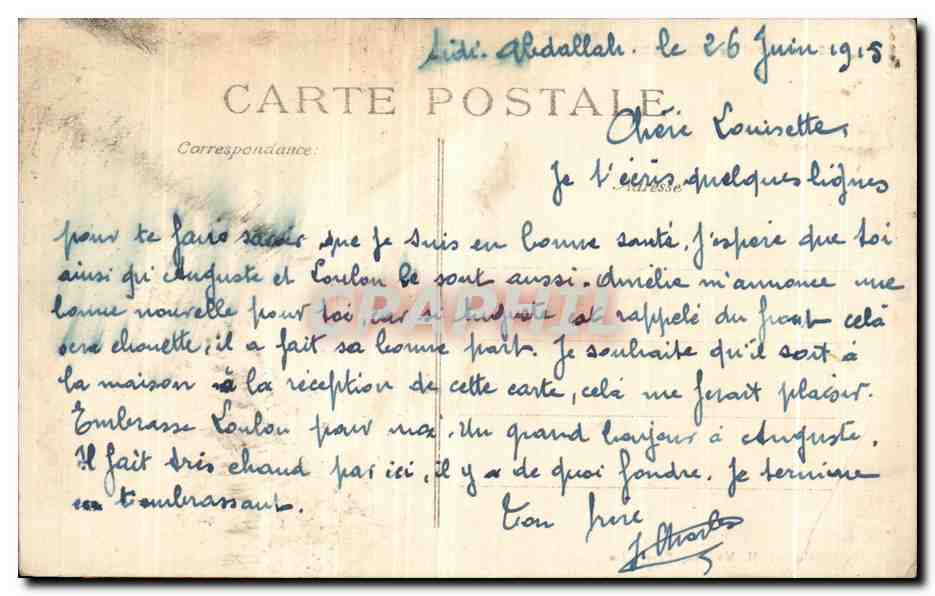 Sidi-Abdallah. le 26 Juin 1915
CARTE POSTALE
Chère Louisette,
Correspondance:
Je t'écris quelques lignes
Adresse
pour te faire savoir que je suis en bonne santé, j'espère que toi
ainsi qu'Auguste et Loulou le sont aussi. Amélie m'annonce une
bonne nouvelle pour toi car si Auguste est rappelé du front celà
sera chouette, il a fait sa bonne part. Je souhaite qu'il soit à
la maison à la réception de cette carte, celà me ferait plaisir.
Embrasse Loulou pour moi. Un grand bonjour à Auguste.
Il fait très chaud par ici, il y a de quoi fondre. Je termine
en t'embrassant.
Ton frère
J. Charles
CPAPHIL